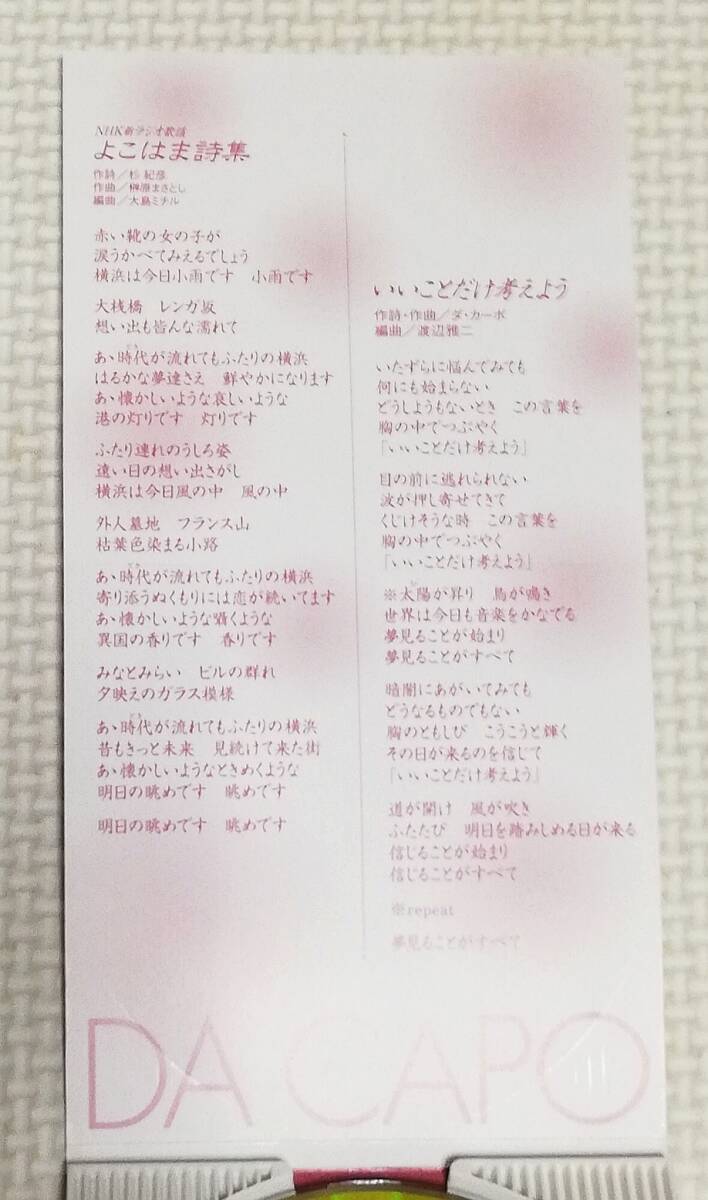 NHK新ラジオ歌謡
よこはま詩集
作詩／杉 紀彦
作曲／榊原まさとし
編曲／大島ミチル
赤い靴の女の子が
涙うかべてみえるでしょう
横浜は今日小雨です　小雨です
大桟橋　レンガ坂
想い出も皆んな濡れて
あゝ時代が流れてもふたりの横浜
はるかな夢達さえ　鮮やかになります
あゝ懐かしいような哀しいような
港の灯りです　灯りです
ふたり連れのうしろ姿
遠い日の想い出さがし
横浜は今日風の中　風の中
外人墓地　フランス山
枯葉色染まる小路
あゝ時代が流れてもふたりの横浜
寄り添うぬくもりには恋が続いてます
あゝ懐かしいような囁くような
異国の香りです　香りです
みなとみらい　ビルの群れ
夕映えのガラス模様
あゝ時代が流れてもふたりの横浜
昔もきっと未来　見続けて来た街
あゝ懐かしいようなときめくような
明日の眺めです　眺めです
明日の眺めです　眺めです
いいことだけ考えよう
作詩・作曲／ダ・カーポ
編曲／渡辺雅二
いたずらに悩んでみても
何にも始まらない
どうしようもないとき　この言葉を
胸の中でつぶやく
「いいことだけ考えよう」
目の前に逃れられない
波が押し寄せてきて
くじけそうな時　この言葉を
胸の中でつぶやく
「いいことだけ考えよう」
※太陽が昇り　鳥が鳴き
世界は今日も音楽をかなでる
夢見ることが始まり
夢見ることがすべて
暗闇にあがいてみても
どうなるものでもない
胸のともしび　こうこうと輝く
その日が来るのを信じて
「いいことだけ考えよう」
道が開け　風が吹き
ふたたび　明日を踏みしめる日が来る
信じることが始まり
信じることがすべて
※repeat
夢見ることがすべて
DA CAPO